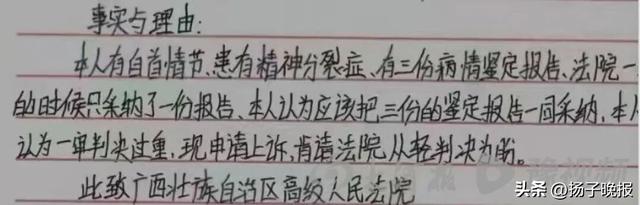 事实与理由:
本人有自首情节、患有精神分裂症、有三份病情鉴定报告、法院一
的时候只采纳了一份报告、本人认为应该把三份的鉴定报告一同采纳,本人
认为一审判决过重,现申请上诉,肯请法院从轻判决为盼。
此致广西壮族自治区高级人民法院
头条 @扬子晚报